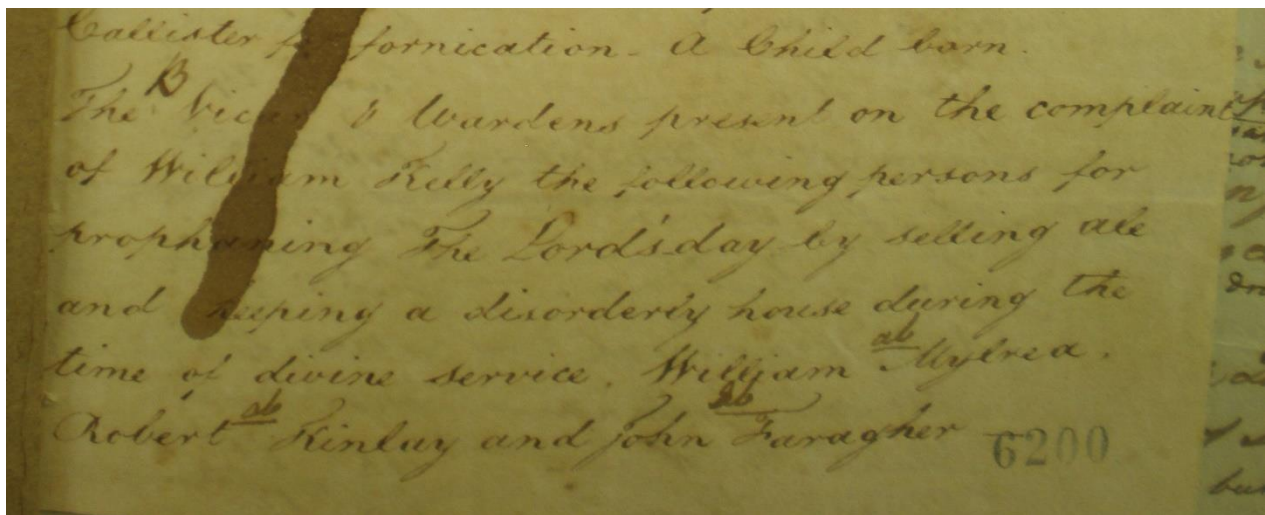 Callister for fornication. A Child born.
B
The Vicar & Wardens present on the complaint
of William Kelly the following persons for
prophaning The Lord's day by selling ale
and keeping a disorderly house during the
time of divine service. William ab Mylrea.
Robert ab Kinley and John ab Faragher
6200